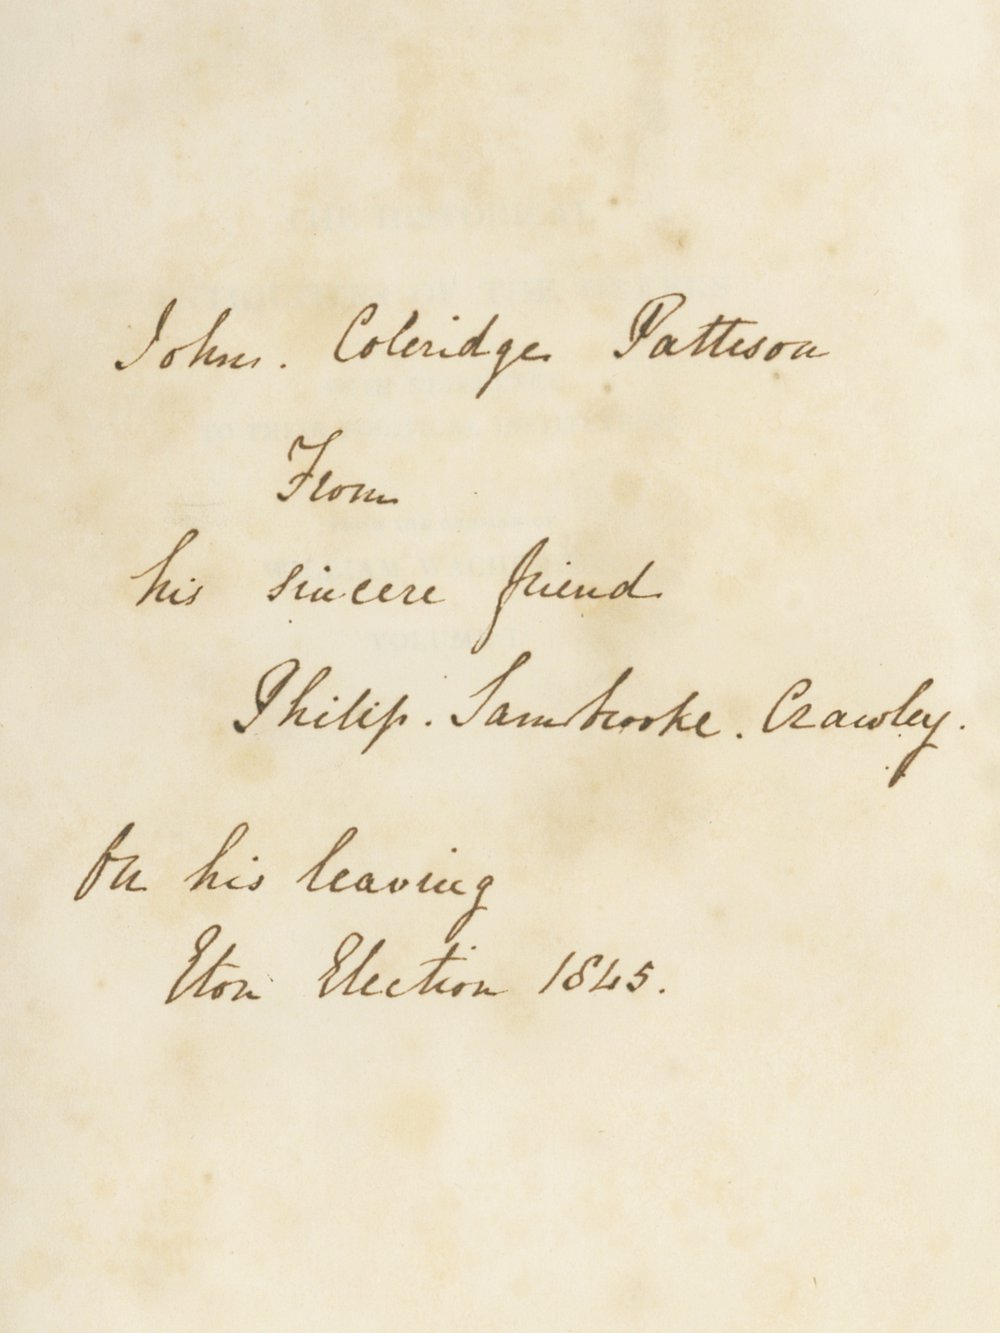 John. Coleridge Patteson
From
his sincere friend
Philip. Sambrooke. Crawley.
On his leaving
Eton Election 1845.